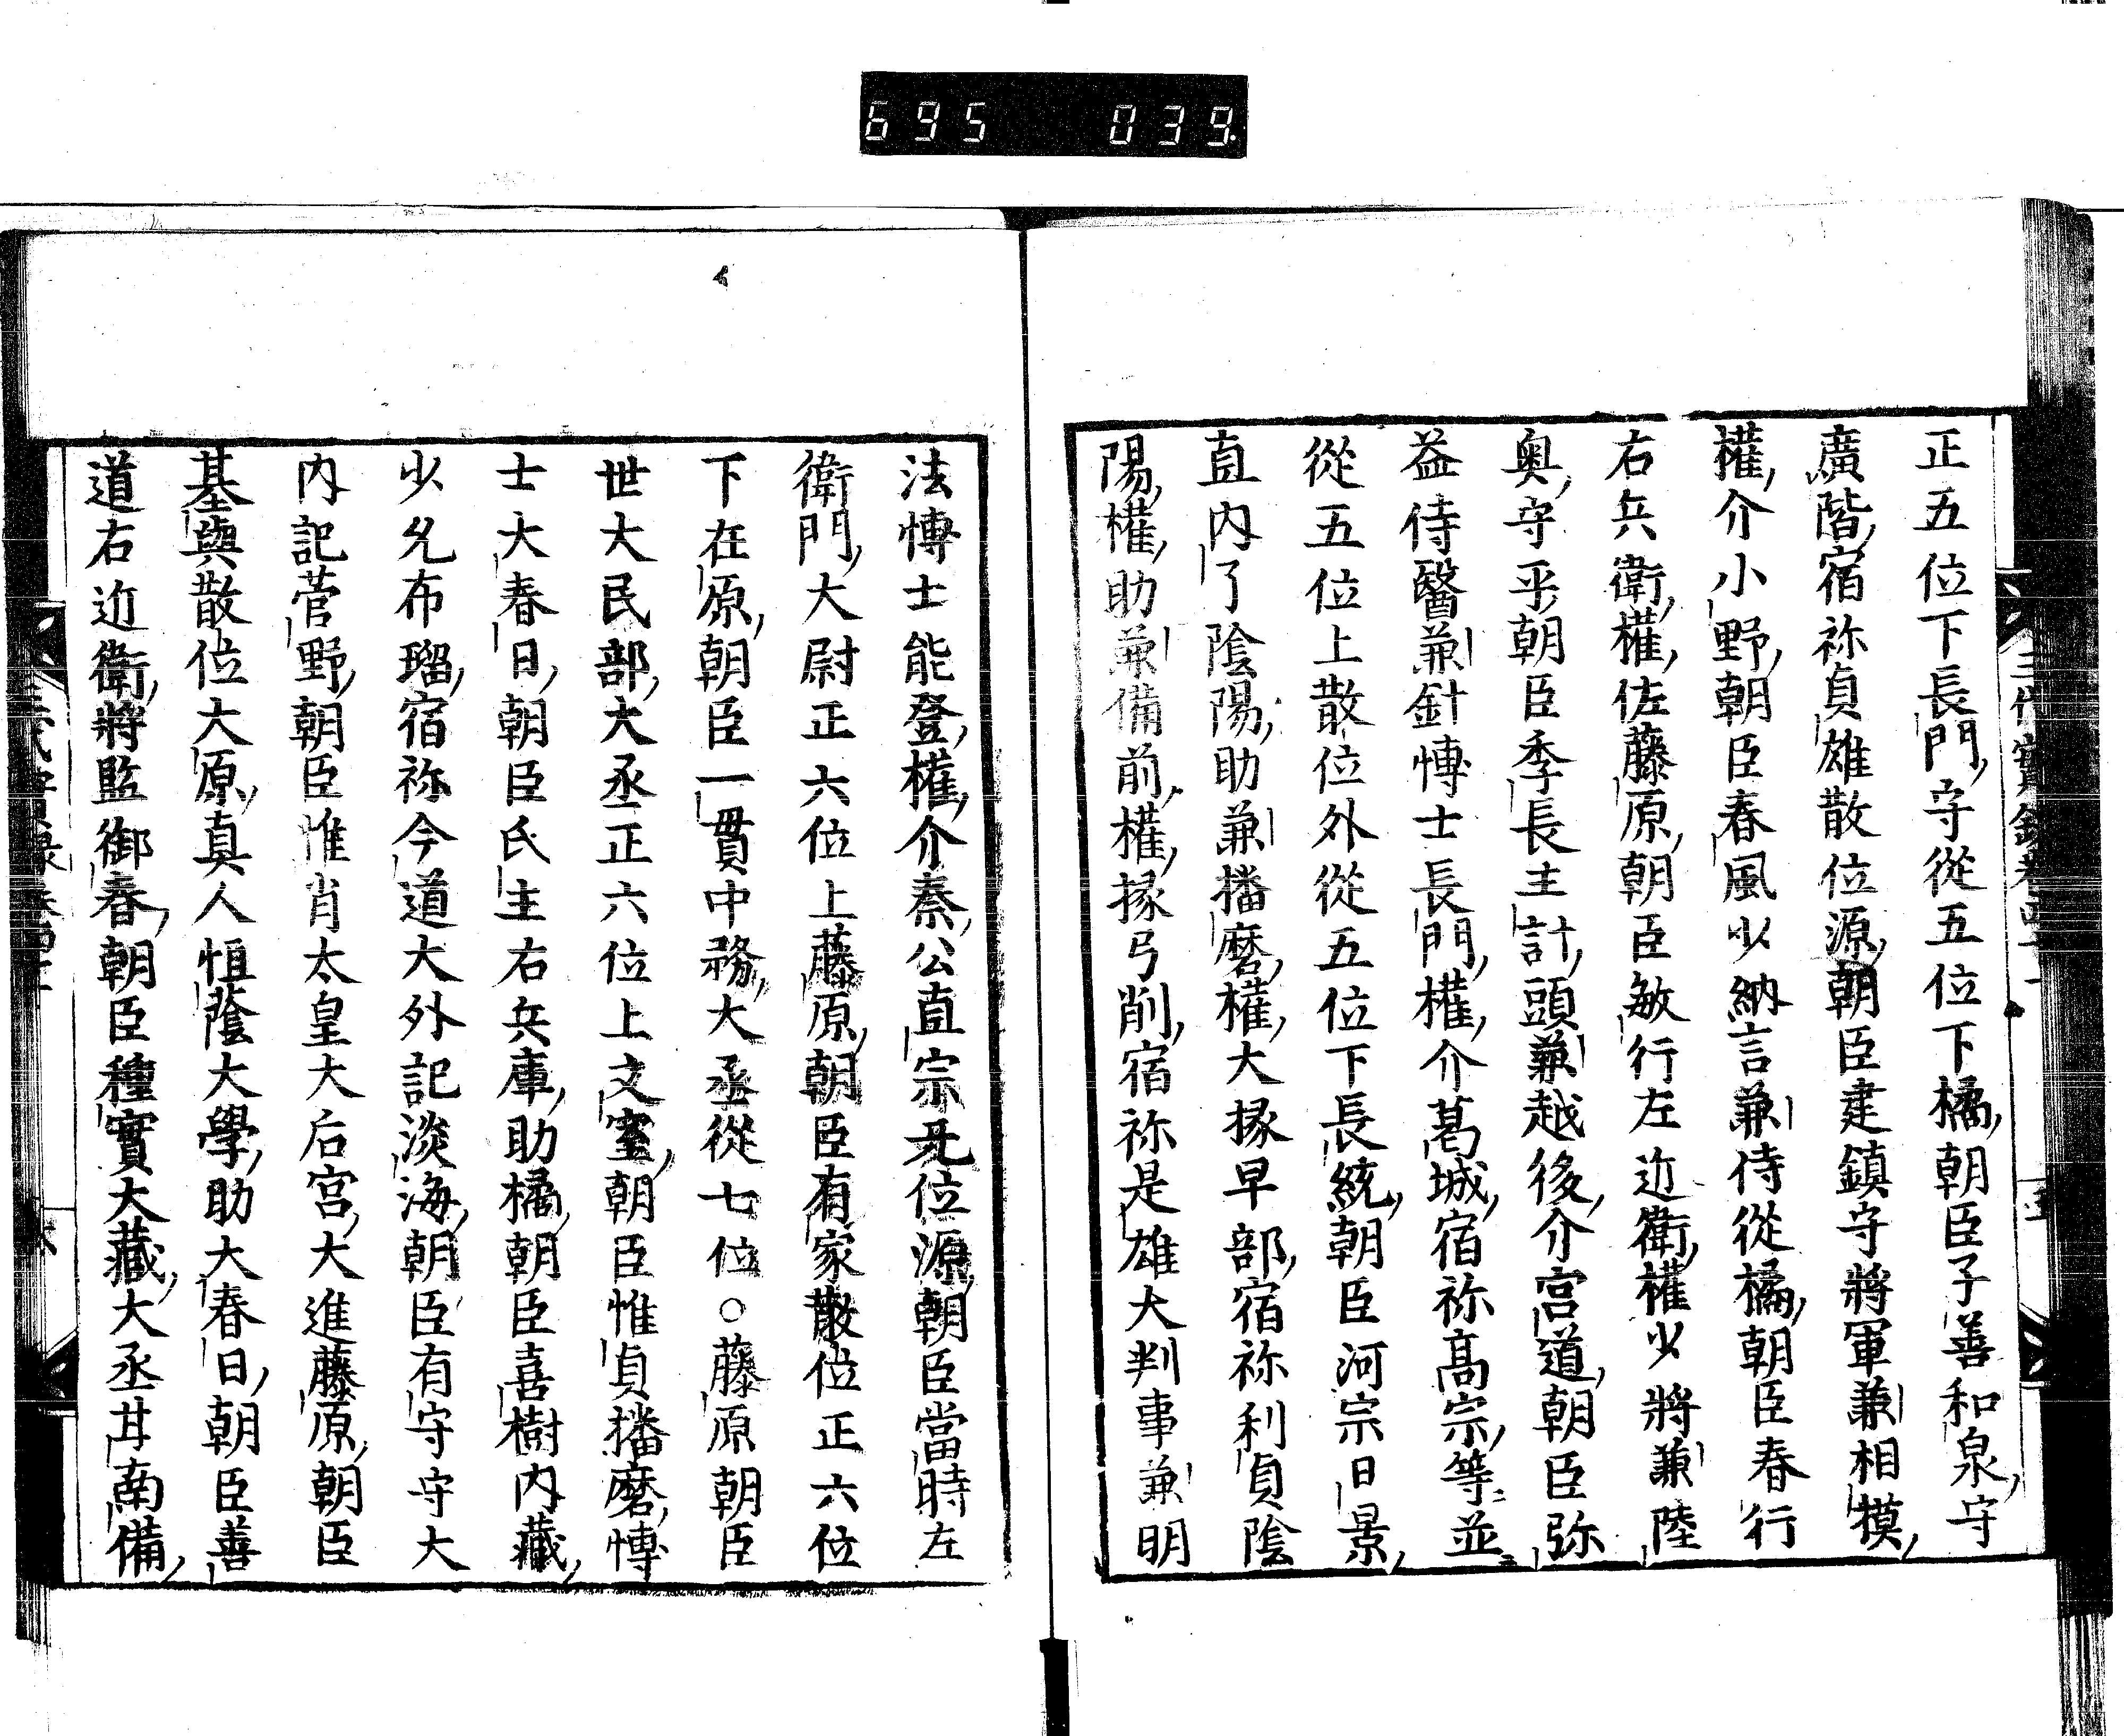 695 039
三代實錄卷四十一
正五位下長門守從五位下橘朝臣子善和泉守
廣階宿祢貞雄散位源朝臣建鎮守將軍兼相摸
權介小野朝臣春風少納言兼侍從橘朝臣春行
右兵衛權佐藤原朝臣敏行左近衛權少將兼陸
奥守乎朝臣季長主計頭兼越後介宮道朝臣弥
益侍醫兼針博士長門權介葛城宿祢高宗等並
從五位上散位外從五位下長統朝臣河宗日景
直内了陰陽助兼播磨權大掾早部宿祢利貞陰
陽權助兼備前權掾弓削宿祢是雄大判事兼明
法博士能登權介秦公直宗旡位源朝臣當時左
衛門大尉正六位上藤原朝臣有家散位正六位
下在原朝臣一貫中務大丞從七位○藤原朝臣
世大民部大丞正六位上文室朝臣惟貞播磨博
士大春日朝臣氏主右兵庫助橘朝臣喜樹内藏
少允布瑠宿祢今道大外記淡海朝臣有守守大
内記菅野朝臣惟肖太皇大后宮大進藤原朝臣
基與散位大原真人恒蔭大學助大春日朝臣善
道右近衛將監御春朝臣種實大藏大丞甘南備